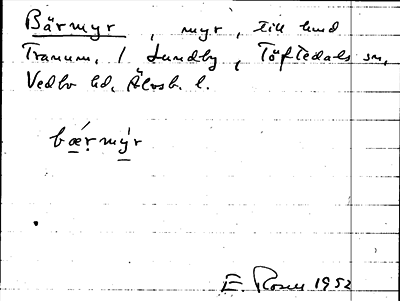 Bärmyr, myr, till hmd
Tranum, / Lundby, Töftedals sn,
Vedbo hd, Älvsb. l.
bærmýr
E. Rosell 1952